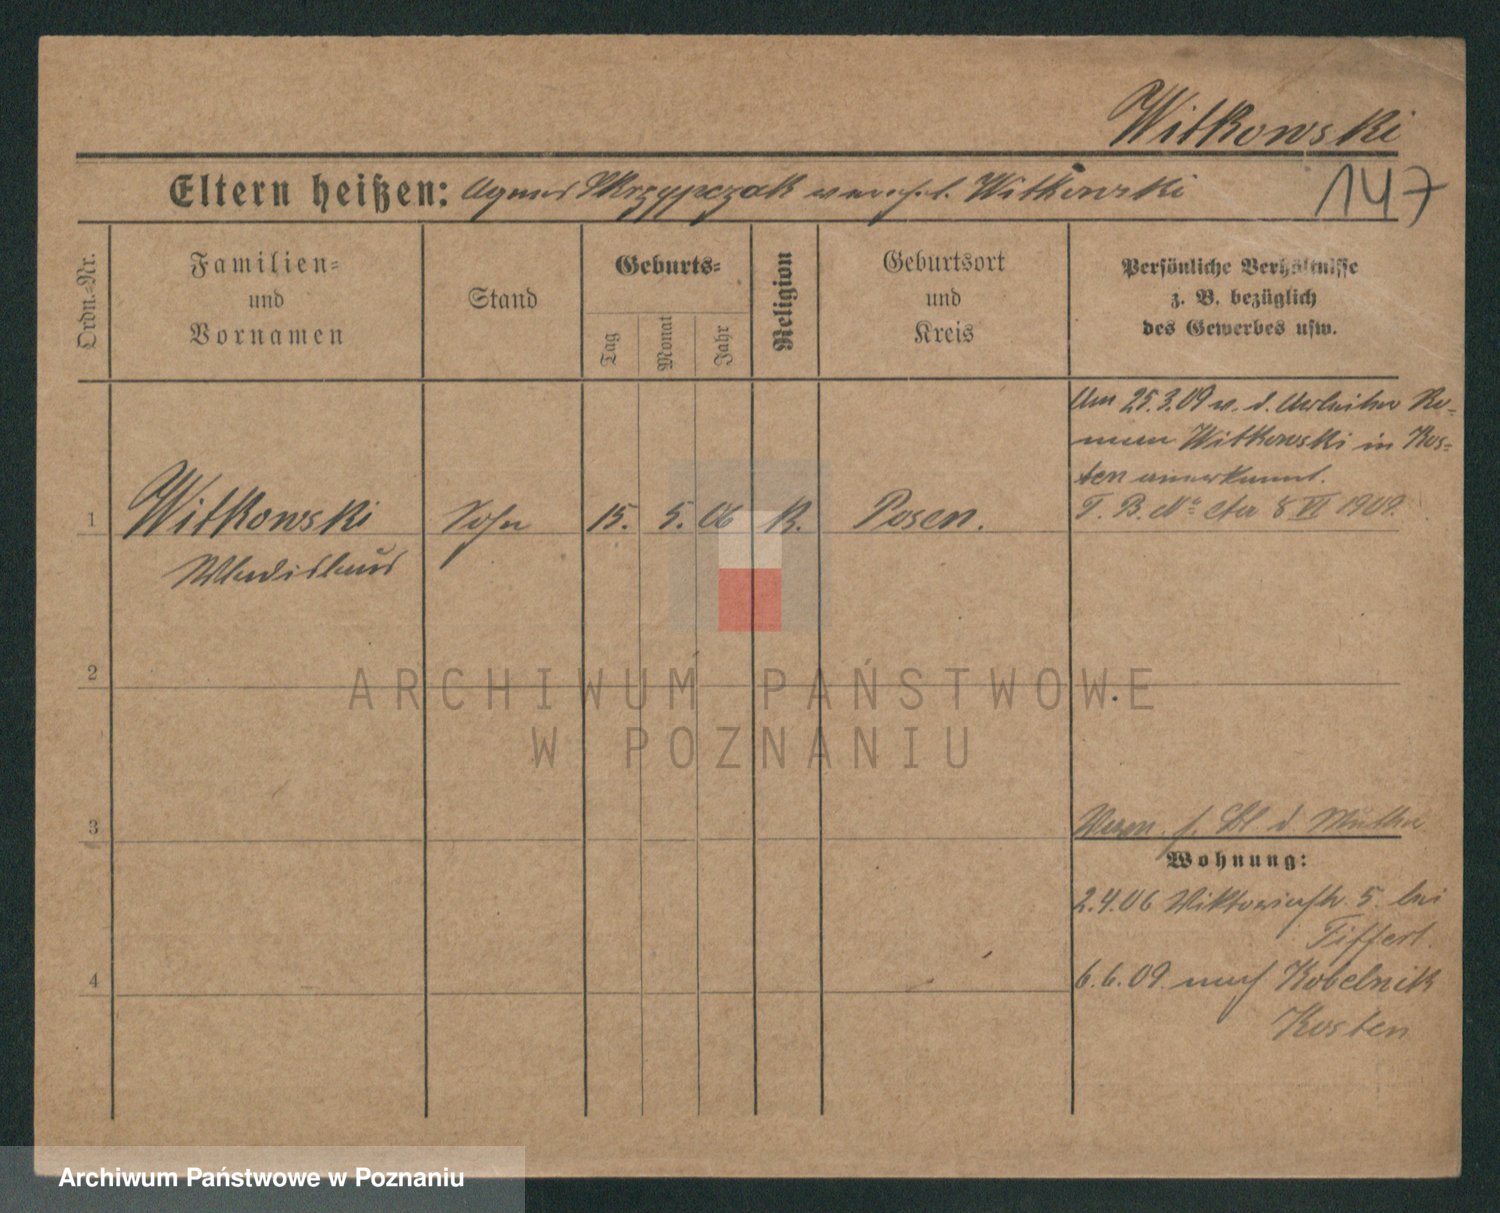 Witkowski
147
Eltern heißen: Agnes Skrzypczak verehel. Witkowski
Ordn.-Nr.
Familien-
und
Vornamen
Stand
Geburts-
Tag
Monat
Jahr
Religion
Geburtsort
und
Kreis
Persönliche Verhältnisse
z. B. bezüglich
des Gewerbes usw.
Am 25.3.09 v. d. Arbeiter Ro-
man Witkowski in Kos-
ten anerkannt.
T. B. No 8 VI 1909.
1 Witkowski Sohn 15. 5. 06 K. Posen.
Wladislaus
2
3
d Mutter
Wohnung:
2.4.06 Viktoriastr. 5. bei
Tiffert.
6.6.09. nach Kobelnik
Kosten
4
ARCHIWUM PAŃSTWOWE
W POZNANIU
Archiwum Państwowe w Poznaniu